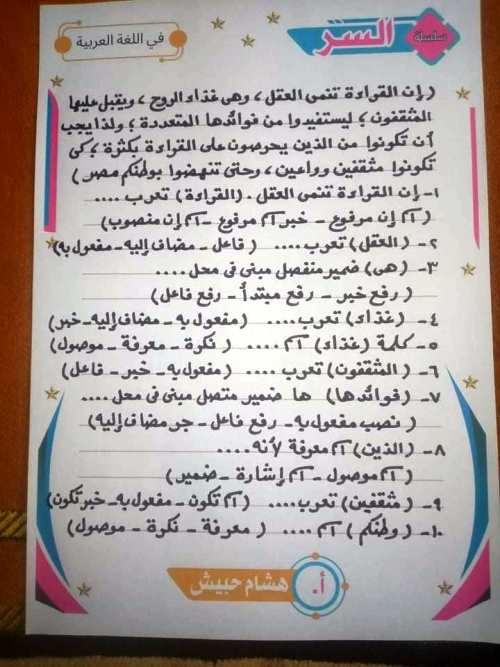 سلسلة
السر
في اللغة العربية
(إن القراءة تنمى العقل، وهى غذاء الروح، ويقبل عليها
المثقفون؛ ليستفيدوا من فوائدها المتعددة؛ ولذا يجب
أن تكونوا من الذين يحرصون على القراءة بكثرة؛ كى
تكونوا مثقفين وواعين، وحتى تنهضوا بوطنكم مصر)
١- إن القراءة تنمى العقل. (القراءة) تعرب ....
(اسم إن مرفوع - خبر اسم مرفوع - اسم إن منصوب)
٢- (العقل) تعرب .... (فاعل - مضاف إليه - مفعول به)
٣- (هى) ضمير منفصل مبنى فى محل ....
(رفع خبر - رفع مبتدأ - رفع فاعل)
٤- (غذاء) تعرب .... (مفعول به - مضاف إليه - خبر)
٥- كلمة (غذاء) اسم .... (نكرة - معرفة - موصول)
٦- (المثقفون) تعرب .... (مفعول به - خبر - فاعل)
٧- (فوائدها) ها ضمير متصل مبنى فى محل ....
(نصب مفعول به - رفع فاعل - جر مضاف إليه)
٨- (الذين) اسم معرفة لأنه ....
(اسم موصول - اسم إشارة - ضمير)
٩- (مثقفين) تعرب .... (اسم تكون - مفعول به - خبر تكون)
١٠- (وطنكم) اسم .... (معرفة - نكرة - موصول)
أ. هشام حبيش